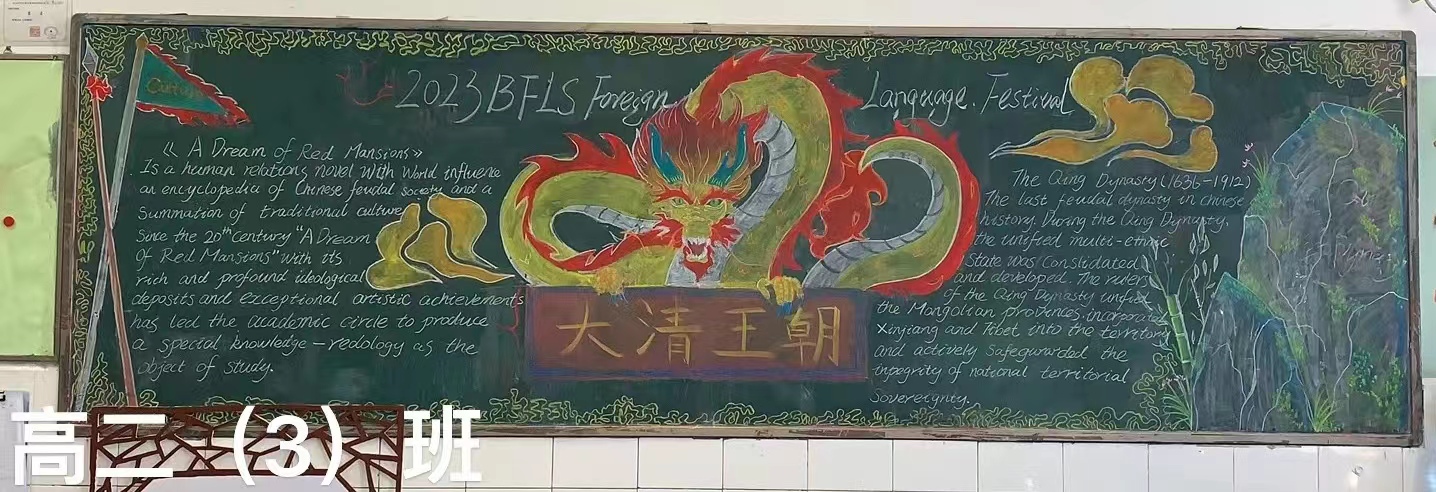 Culture
2023 BFLS Foreign Language. Festival
《 A Dream of Red Mansions》
Is a human relations novel with world influence
an encyclopedia of Chinese feudal society and a
summation of traditional culture
Since the 20th century "A Dream
Of Red Mansions" with its
rich and profound ideological
deposits and exceptional artistic achievements
has led the academic circle to produce
a special knowledge—redology as the
object of study.
大清王朝
The Qing Dynasty(1636-1912)
The last feudal dynasty in chinese
history. During the Qing Dynasty,
the unified multi-ethnic
State was Conslidated
and developed. The rulers
of the Qing Dynasty unified
the Mongolian provinces. incorporated
Xinjiang and Tibet into the territory
and actively safeguarded the
integrity of national territorial
Sovereignty.
高二（3）班